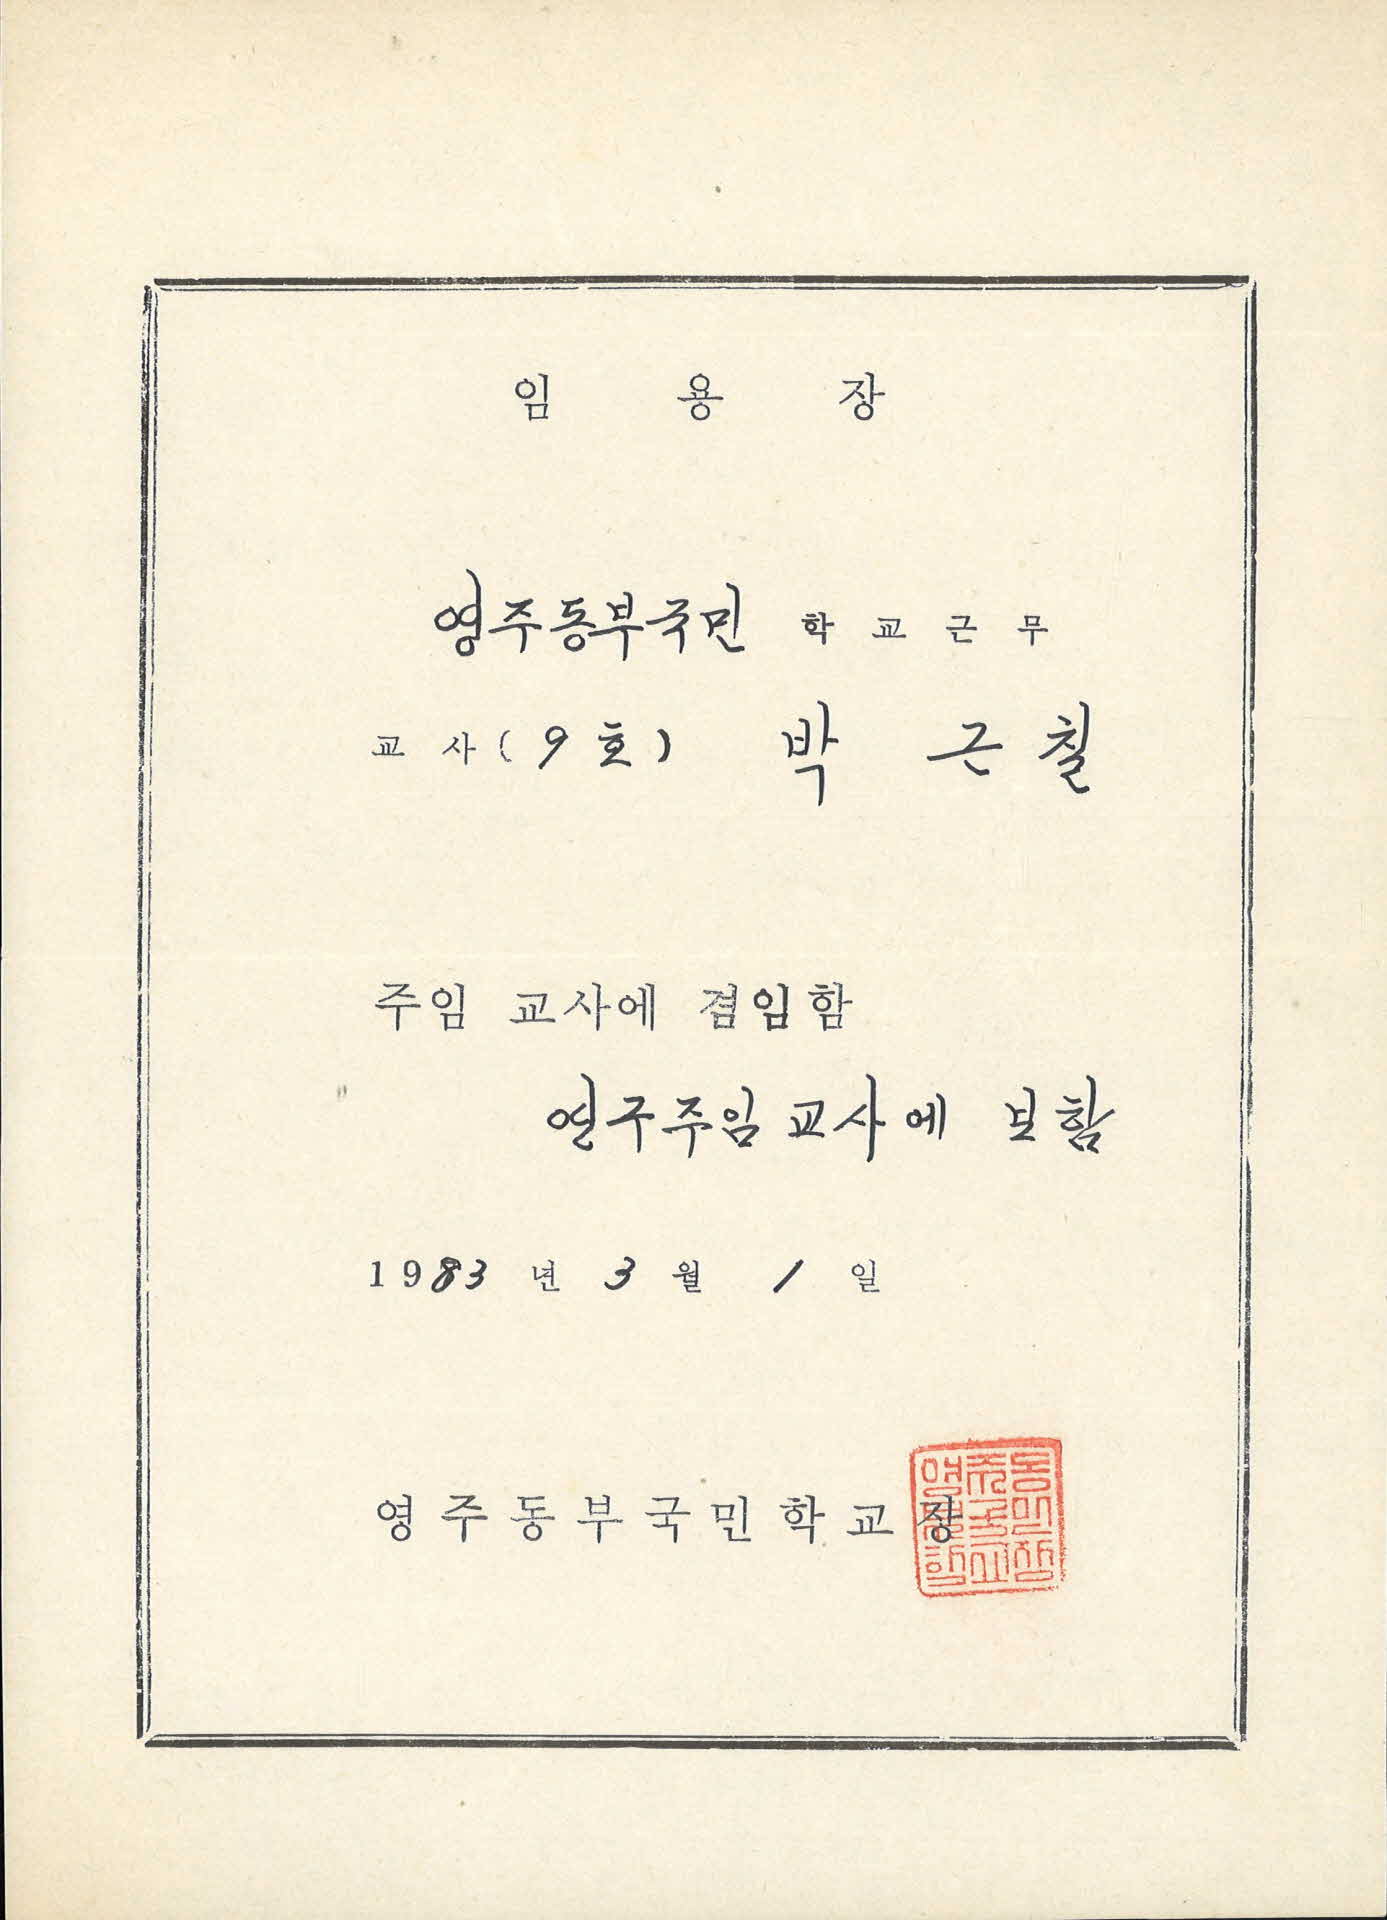 임 용 장
영주동부국민 학교근무
교 사 (9 호) 박 근 칠
주임 교사에 겸임함
연구주임교사에 보함
1983 년 3 월 1 일
영주동부국민학교장
영주동
부국민
학교장